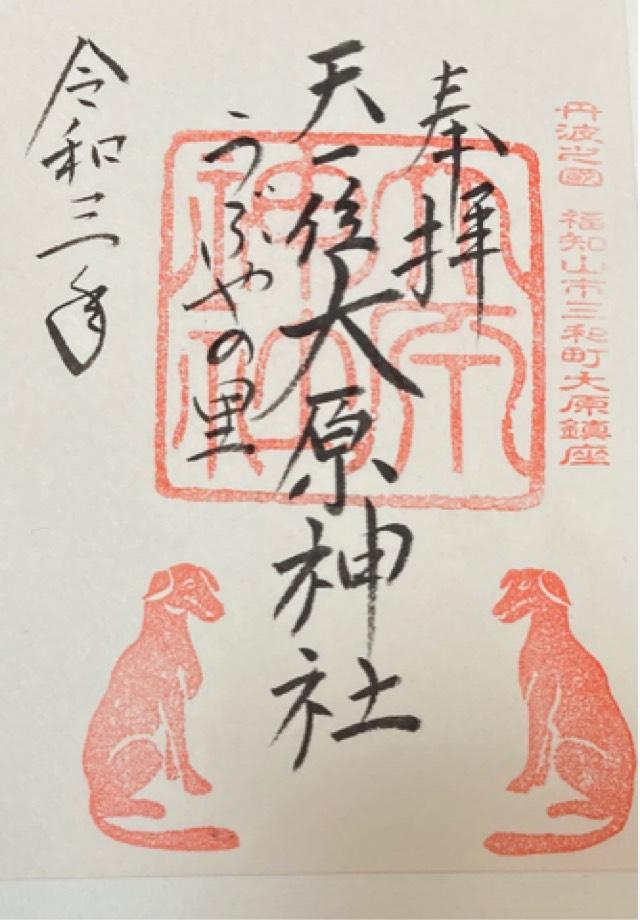 丹波之國 福知山市三和町大原鎮座
奉拝
天一位大原神社
うぶやの里
令和三年